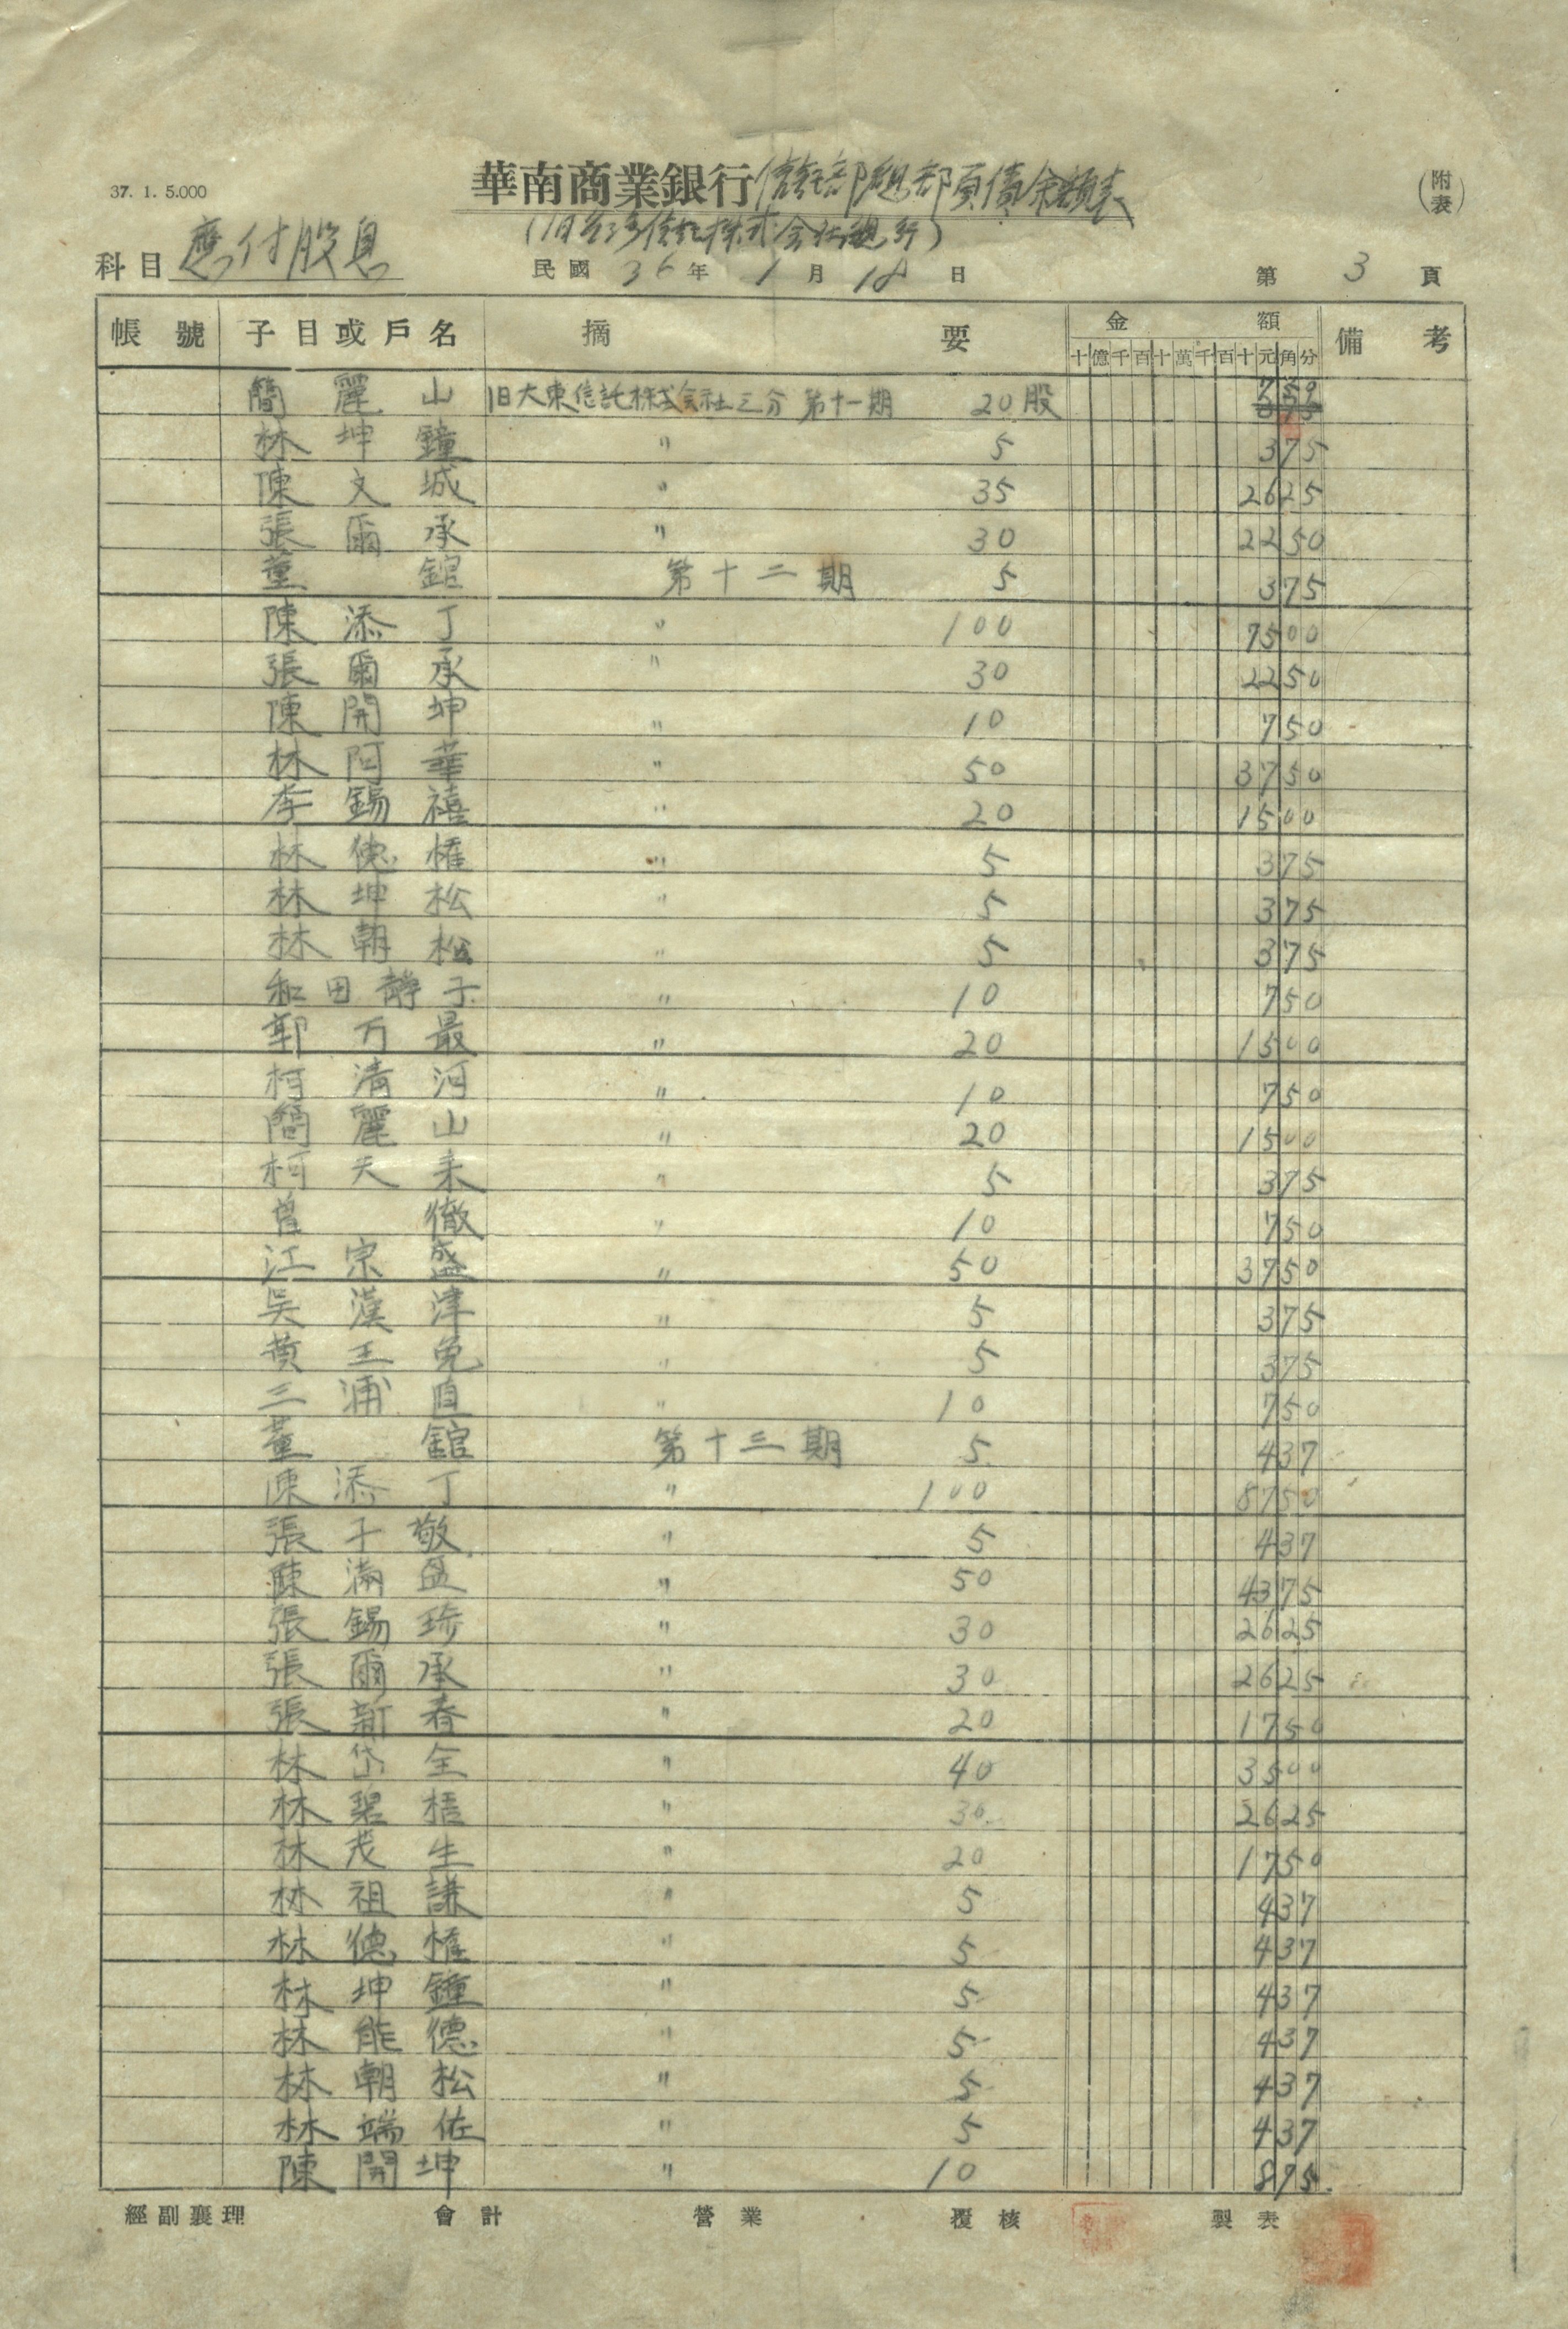 37. 1. 5.000
華南商業銀行信託部總部負債余額表
(附表)
(旧台湾信託株式会社總行)
科目 應付股息
民國 36 年 1 月 18 日
第 3 頁
帳號 子目或戶名 摘要 金額 備考
十億千百十萬千百十元角分
簡麗山 旧大東信託株式会社三分 第十一期 20股 750
林坤鐘 〃 5 375
陳文城 〃 35 2625
張爾承 〃 30 2250
董 錧 第十二期 5 375
陳添丁 〃 100 7500
張爾承 〃 30 2250
陳開坤 〃 10 750
林阿華 〃 50 3750
李錫禧 〃 20 1500
林德權 〃 5 375
林坤松 〃 5 375
林朝松 〃 5 375
和田靜子 〃 10 750
郭万最 〃 20 1500
柯清河 〃 10 750
簡麗山 〃 20 1500
柯天来 〃 5 375
曾 徹 〃 10 750
江宗盛 〃 50 3750
吳漢津 〃 5 375
黄王免 〃 5 375
三浦直 〃 10 750
董 錧 第十三期 5 437
陳添丁 〃 100 8750
張子敬 〃 5 437
陳滿盈 〃 50 4375
張錫珍 〃 30 2625
張爾承 〃 30 2625
張新春 〃 20 1750
林岱全 〃 40 3500
林碧梧 〃 30 2625
林茂生 〃 20 1750
林祖謙 〃 5 437
林德權 〃 5 437
林坤鐘 〃 5 437
林能德 〃 5 437
林朝松 〃 5 437
林端佐 〃 5 437
陳開坤 〃 10 875
經副襄理 會計 營業 覆核 製表